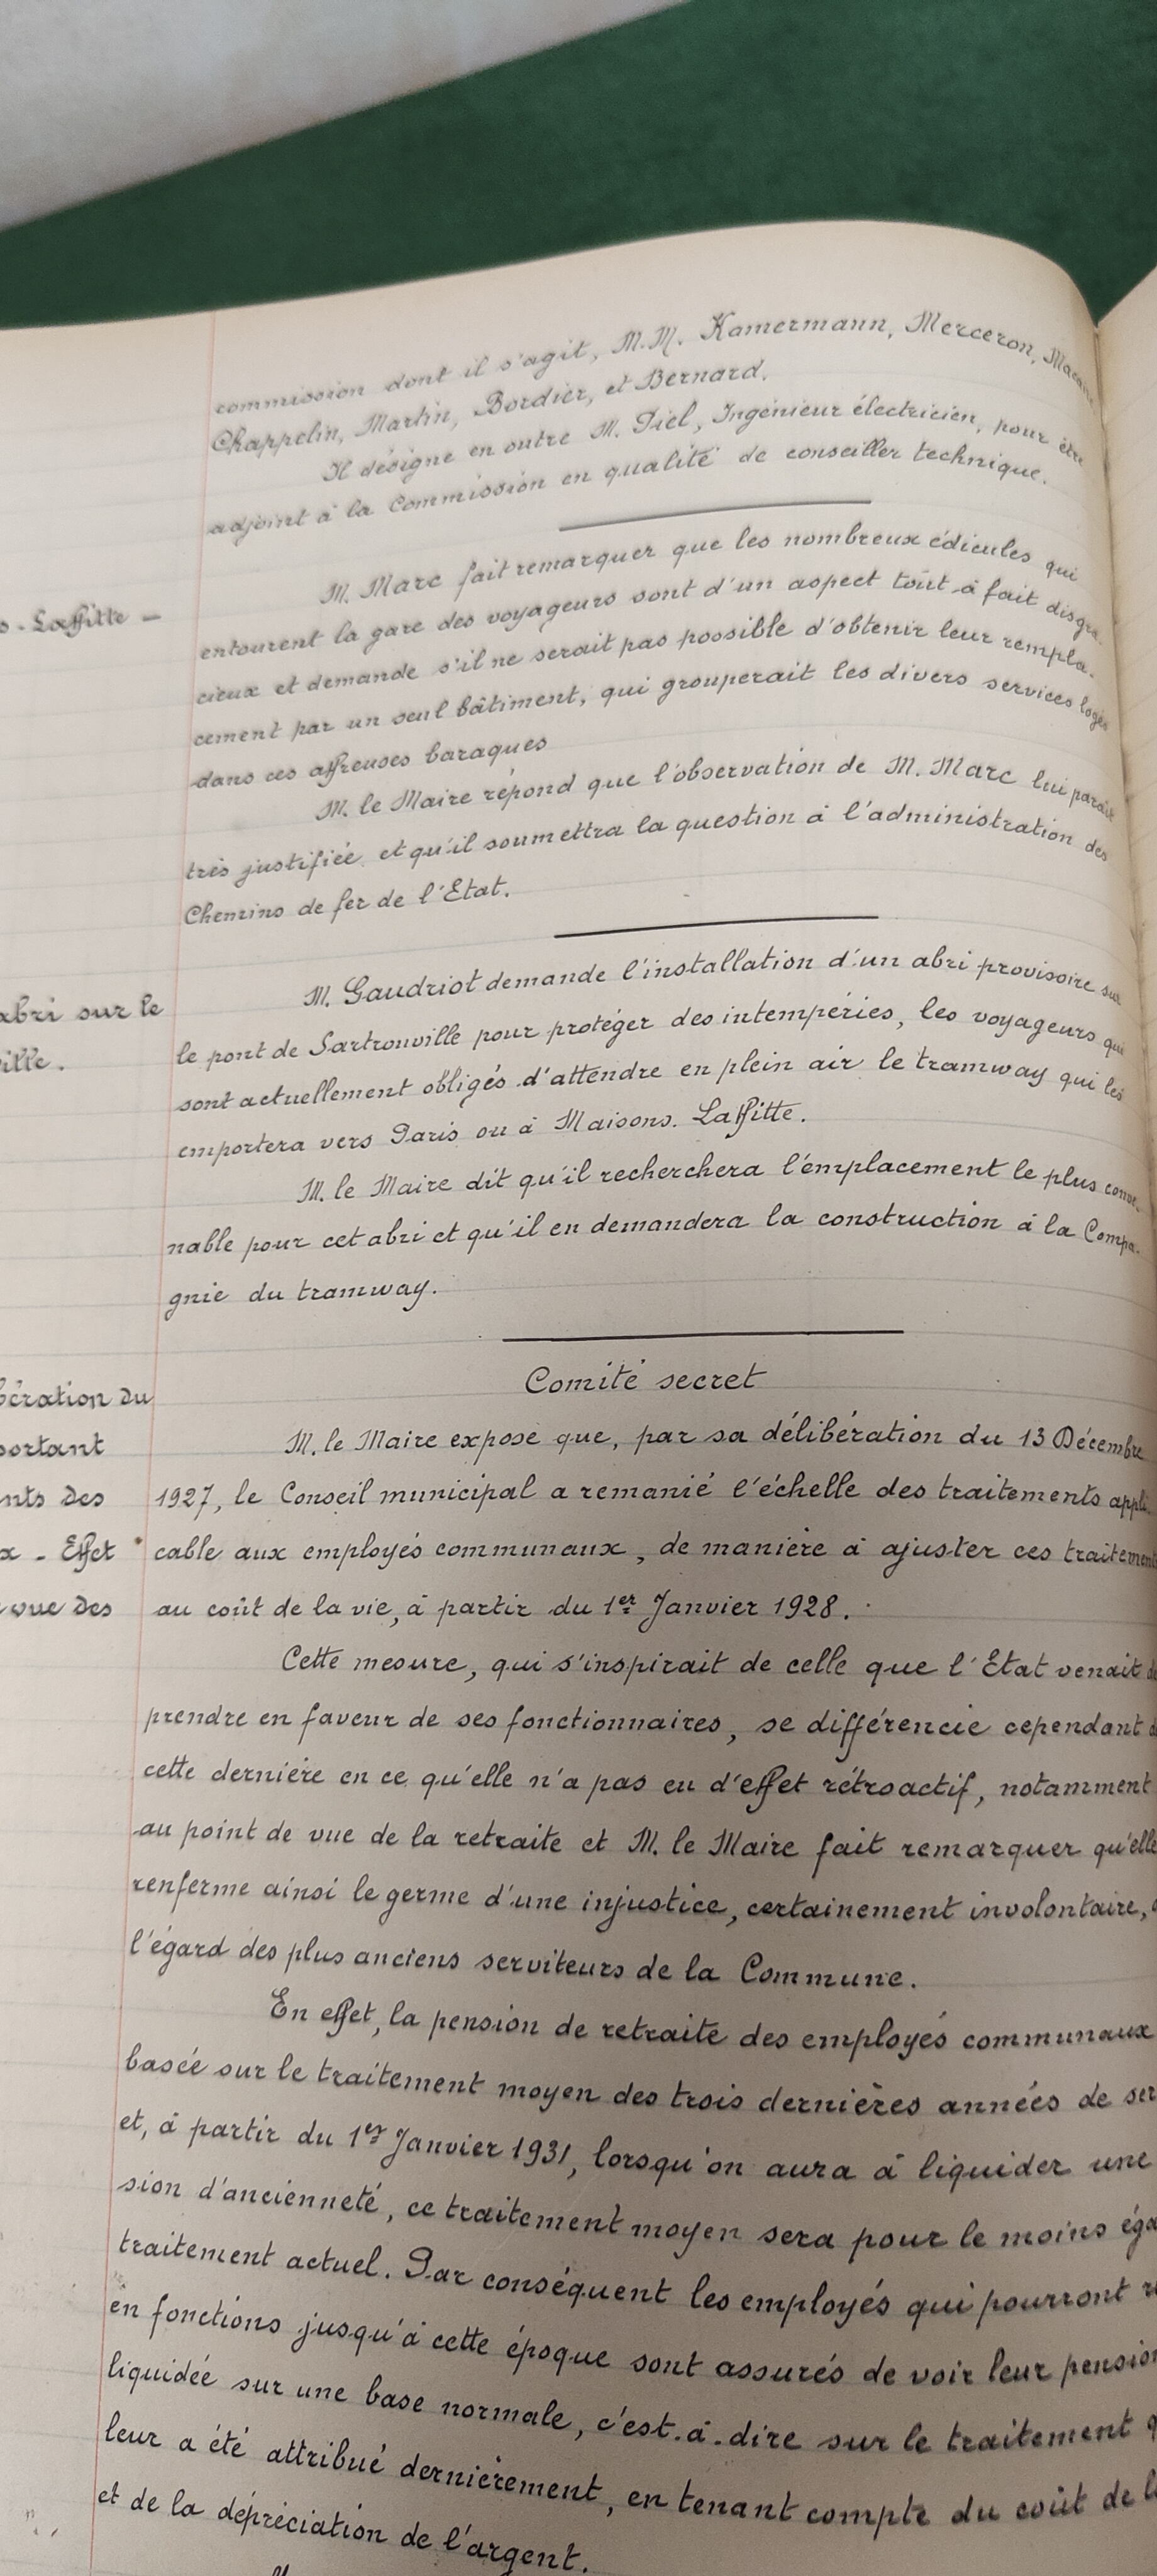 commission dont il s'agit, M.M. Kamermann, Merceron,
Chappelin, Martin, Bordier, et Bernard.
Il désigne en outre M. Piel, Ingénieur électricien, pour être
adjoint à la Commission en qualité de conseiller technique.
s-Laffitte -
M. Marc fait remarquer que les nombreux édicules qui
entourent la gare des voyageurs sont d'un aspect tout-à fait disgra-
cieux et demande s'il ne serait pas possible d'obtenir leur rempla-
cement par un seul bâtiment, qui grouperait les divers services logés
dans ces affreuses baraques
M. le Maire répond que l'observation de M. Marc lui paraît
très justifiée et qu'il soumettra la question à l'administration des
Chemins de fer de l'Etat.
abri sur le
ville.
M. Gaudriot demande l'installation d'un abri provisoire sur
le pont de Sartrouville pour protéger des intempéries, les voyageurs qui
sont actuellement obligés d'attendre en plein air le tramway qui les
emportera vers Paris ou à Maisons-Laffitte.
M. le Maire dit qu'il recherchera l'emplacement le plus conve-
nable pour cet abri et qu'il en demandera la construction à la Compa-
gnie du tramway.
Comité secret
bération du
portant
nts des
x - Effet
vue des
M. le Maire expose que, par sa délibération du 13 Décembre
1927, le Conseil municipal a remanié l'échelle des traitements appli-
cable aux employés communaux, de manière à ajuster ces traitements
au coût de la vie, à partir du 1er Janvier 1928.
Cette mesure, qui s'inspirait de celle que l'Etat venait de
prendre en faveur de ses fonctionnaires, se différencie cependant de
cette dernière en ce qu'elle n'a pas eu d'effet rétroactif, notamment
au point de vue de la retraite et M. le Maire fait remarquer qu'elle
renferme ainsi le germe d'une injustice, certainement involontaire, à
l'égard des plus anciens serviteurs de la Commune.
En effet, la pension de retraite des employés communaux
basée sur le traitement moyen des trois dernières années de ser
et, à partir du 1er Janvier 1931, lorsqu'on aura à liquider une
sion d'ancienneté, ce traitement moyen sera pour le moins éga
traitement actuel. Par conséquent les employés qui pourront r
en fonctions jusqu'à cette époque sont assurés de voir leur pension
liquidée sur une base normale, c'est-à-dire sur le traitement q
leur a été attribué dernièrement, en tenant compte du coût de la
et de la dépréciation de l'argent.